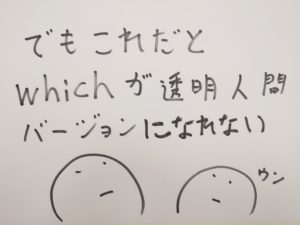 でもこれだと
whichが透明人間
バージョンになれない
ウン